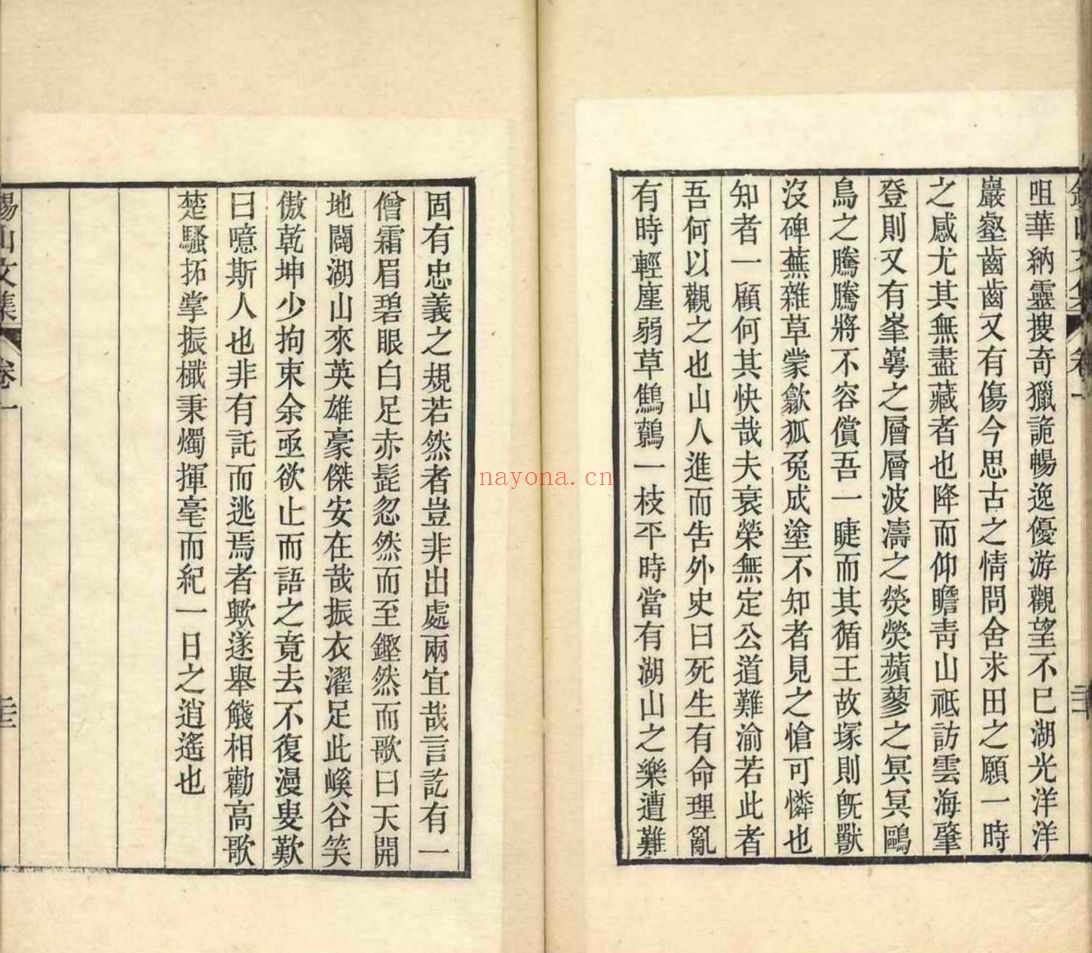 咀華納靈搜奇獵詭暢逸優游觀望不巳湖光洋洋
巖壑齒齒又有傷今思古之情問舍求田之願一時
之感尤其無盡藏者也降而仰瞻青山祗訪雲海肇
登則又有峯蕚之層層波濤之熒熒蘋蓼之冥冥鷗
鳥之騰騰將不容償吾一睫而其循王故塚則旣獸
沒碑蕪雜草蒙歙狐兔成塗不知者見之愴可憐也
知者一顧何其快哉夫衰榮無定公道難渝若此者
吾何以觀之也山人進而告外史曰死生有命理亂
有時輕塵弱草鷦鷯一枝平時當有湖山之樂遭難
固有忠義之規若然者豈非出處兩宜哉言訖有一
僧霜眉碧眼白足赤髭忽然而至鏗然而歌曰天開
地闢湖山來英雄豪傑安在哉振衣濯足此嵠谷笑
傲乾坤少拘束余亟欲止而語之竟去不復漫叟歎
曰噫斯人也非有託而逃焉者歟遂舉觴相勸高歌
楚騷拓掌振檝秉燭揮毫而紀一日之逍遙也
錫山文集
卷一
nayona.cn